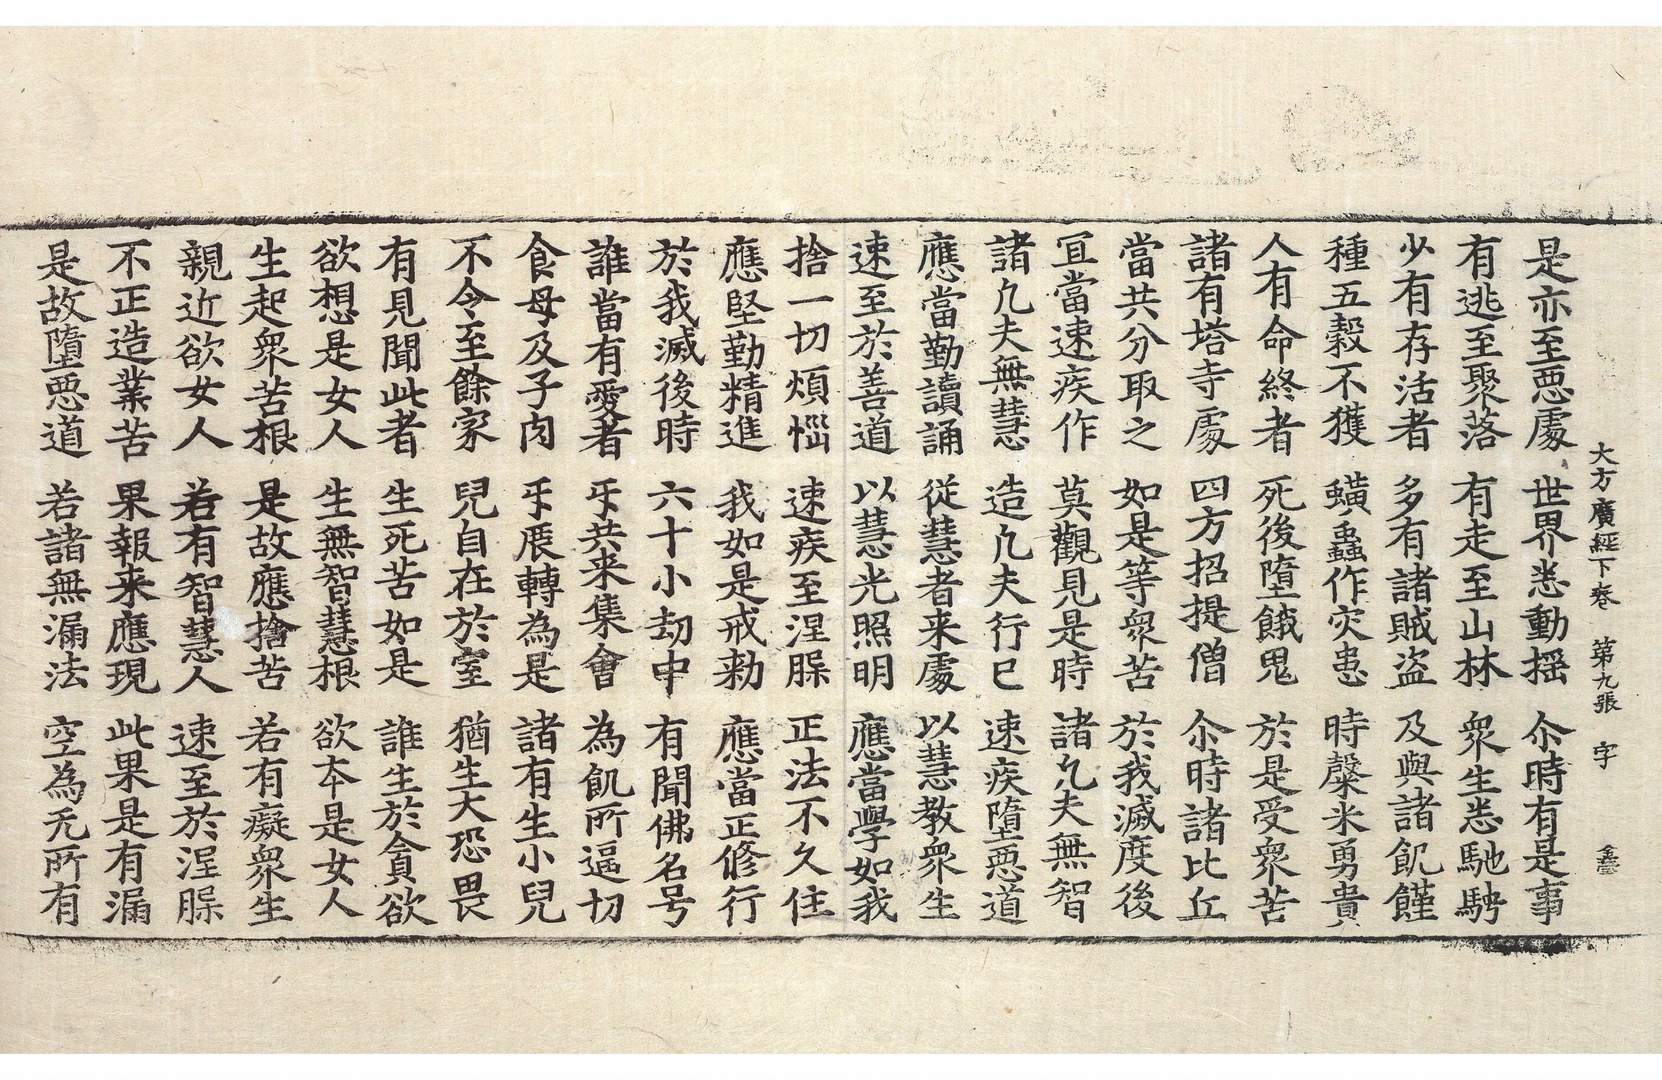 大方廣經下卷 第九張 字
是亦至惡處 世界悉動搖 尒時有是事
有逃至聚落 有走至山林 衆生悉馳騁
少有存活者 多有諸賊盜 及與諸飢饉
種五穀不獲 蟥蟲作灾患 時穈米勇貴
人有命終者 死後墮餓鬼 於是受衆苦
諸有塔寺處 四方招提僧 尒時諸比丘
當共分取之 如是等衆苦 於我滅度後
冝當速疾作 莫觀見是時 諸凢夫無智
諸凢夫無慧 造凢夫行已 速疾墮惡道
應當勤讀誦 從慧者来處 以慧教衆生
速至於善道 以慧光照明 應當學如我
捨一切煩惱 速疾至涅槃 正法不久住
應堅勤精進 我如是戒勑 應當正修行
於我滅後時 六十小劫中 有聞佛名号
誰當有愛者 㸦共来集會 為飢所逼切
食母及子肉 㸦展轉為是 諸有生小兒
不令至餘家 兒自在於室 猶生大恐畏
有見聞此者 生死苦如是 誰生於貪欲
欲想是女人 生無智慧根 欲夲是女人
生起衆苦根 是故應捨苦 若有癡衆生
親近欲女人 若有智慧人 速至於涅槃
不正造業苦 果報来應現 此果是有漏
是故墮惡道 若諸無漏法 空為无所有